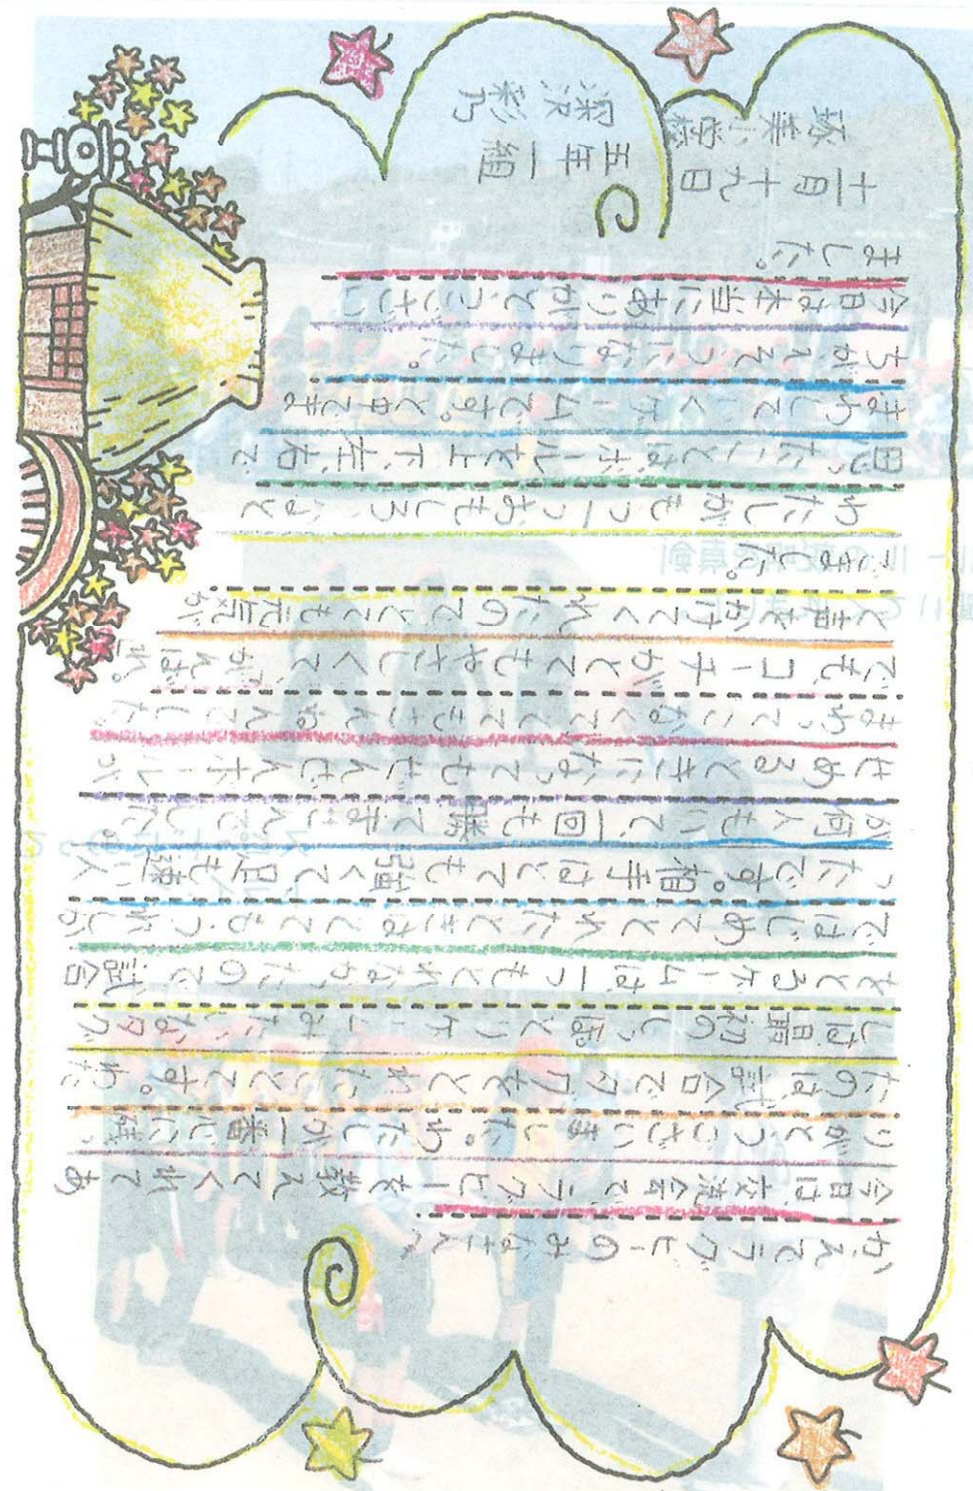 かえでラグビーのみなさんへ
今日は交流会でラグビーを教えてくれてあ
りがとうございました。わたしが一番心に残っ
たのは試合でタグをとれたことです。わた
しは最初のしっぽとりゲームみたいなタグ
をとるゲームは一つもとれなかったので試合
ではじめてとれたときはとてもうれしか
ったです。相手はとても強くて足も速い人
が何人もいて、一回も勝てませんでした。
せめるときになってもぜんぜんボールが
まわってこなくてとてもざんねんでした。
でもコーチがとてもやさしくて、「がんばれ。」
と声をかけてくれたのでとても元気が
でました。
わたしがもう一つおもしろいなと
思ったことはボールを上下、左右で
まわしていくゲームです。と中でま
ちがえそうになりました。
今日は本当にありがとうござい
ました。
十一月十九日
琢美小学校
五年一組
深沢彩乃